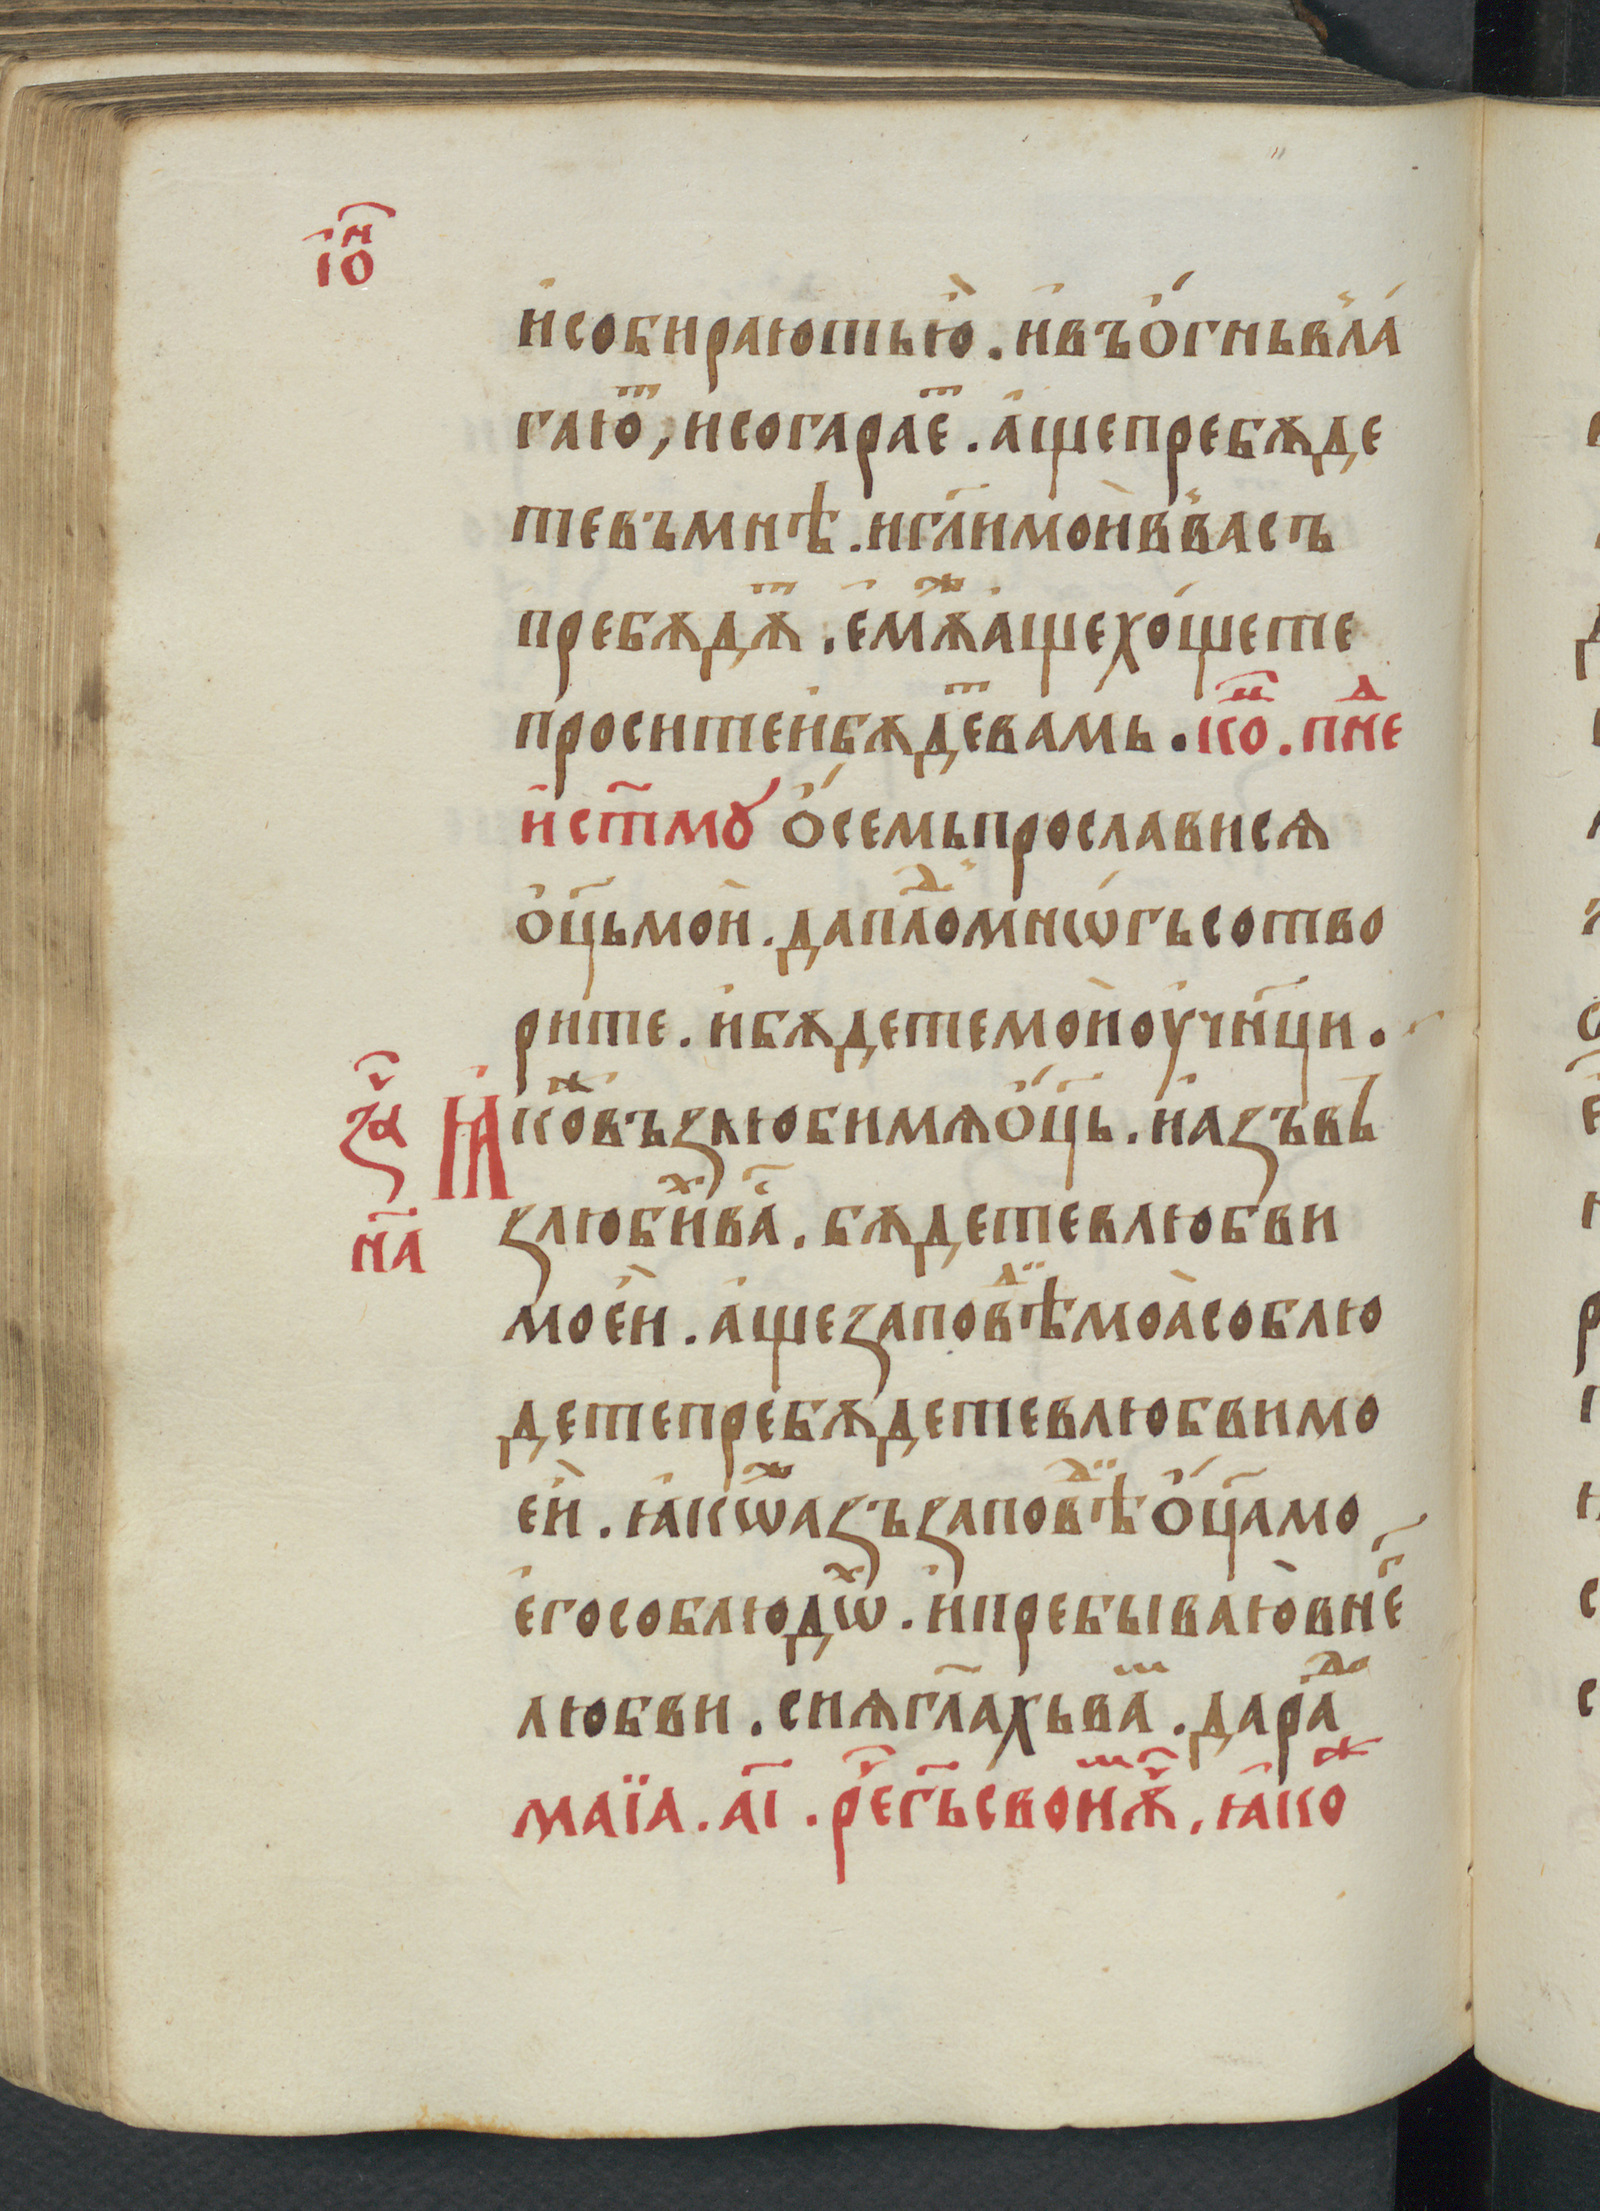 іѡ҃н
и҆собираютью҆̀ . и҆въо҆́гньвла́
гаюⷮ҇, исогараеⷮ҇ . а҆щепребѫде
тевъмнѣ . игл҃имои̇̀ввасъ
пребѫдѫⷮ҇ . е҆мѫⷤа҆щехо́щете
просите́и҆бѫдеⷮвамь . коⷩ҇ . пнⷣе
и҆ст҃мꙋ о҆́семьпрославися
о҆ц҃ьмои̇̀ . даплоⷣмнѡ́гьсотво
рите . и҆бѫдетемои̇̀оу҆чн҃ци .
за҃ Ꙗ҆коⷤвъзлюбимѧо҆́ц҃ь . и҆азъвъ
на҃ злюбиⷯва́с . бѫдетевлюбви
мое҆и̇̀ . а҆щезаповѣⷣмоа҆̀соблю
детепребѫдетевлюбвимо
е҆и̇̀ . ꙗ҆кѡⷤазъзаповѣⷣо҆́ц҃амо
е҆гособлюдѡⷯ . и҆пребываю҆̀вне҆г
любви . сиѧгл҃ахьваⷨ . дараⷣ
маїа . а҃і . реⷱ҇гьсвоиⷨѫ҆ч . ꙗ҆коⷤ